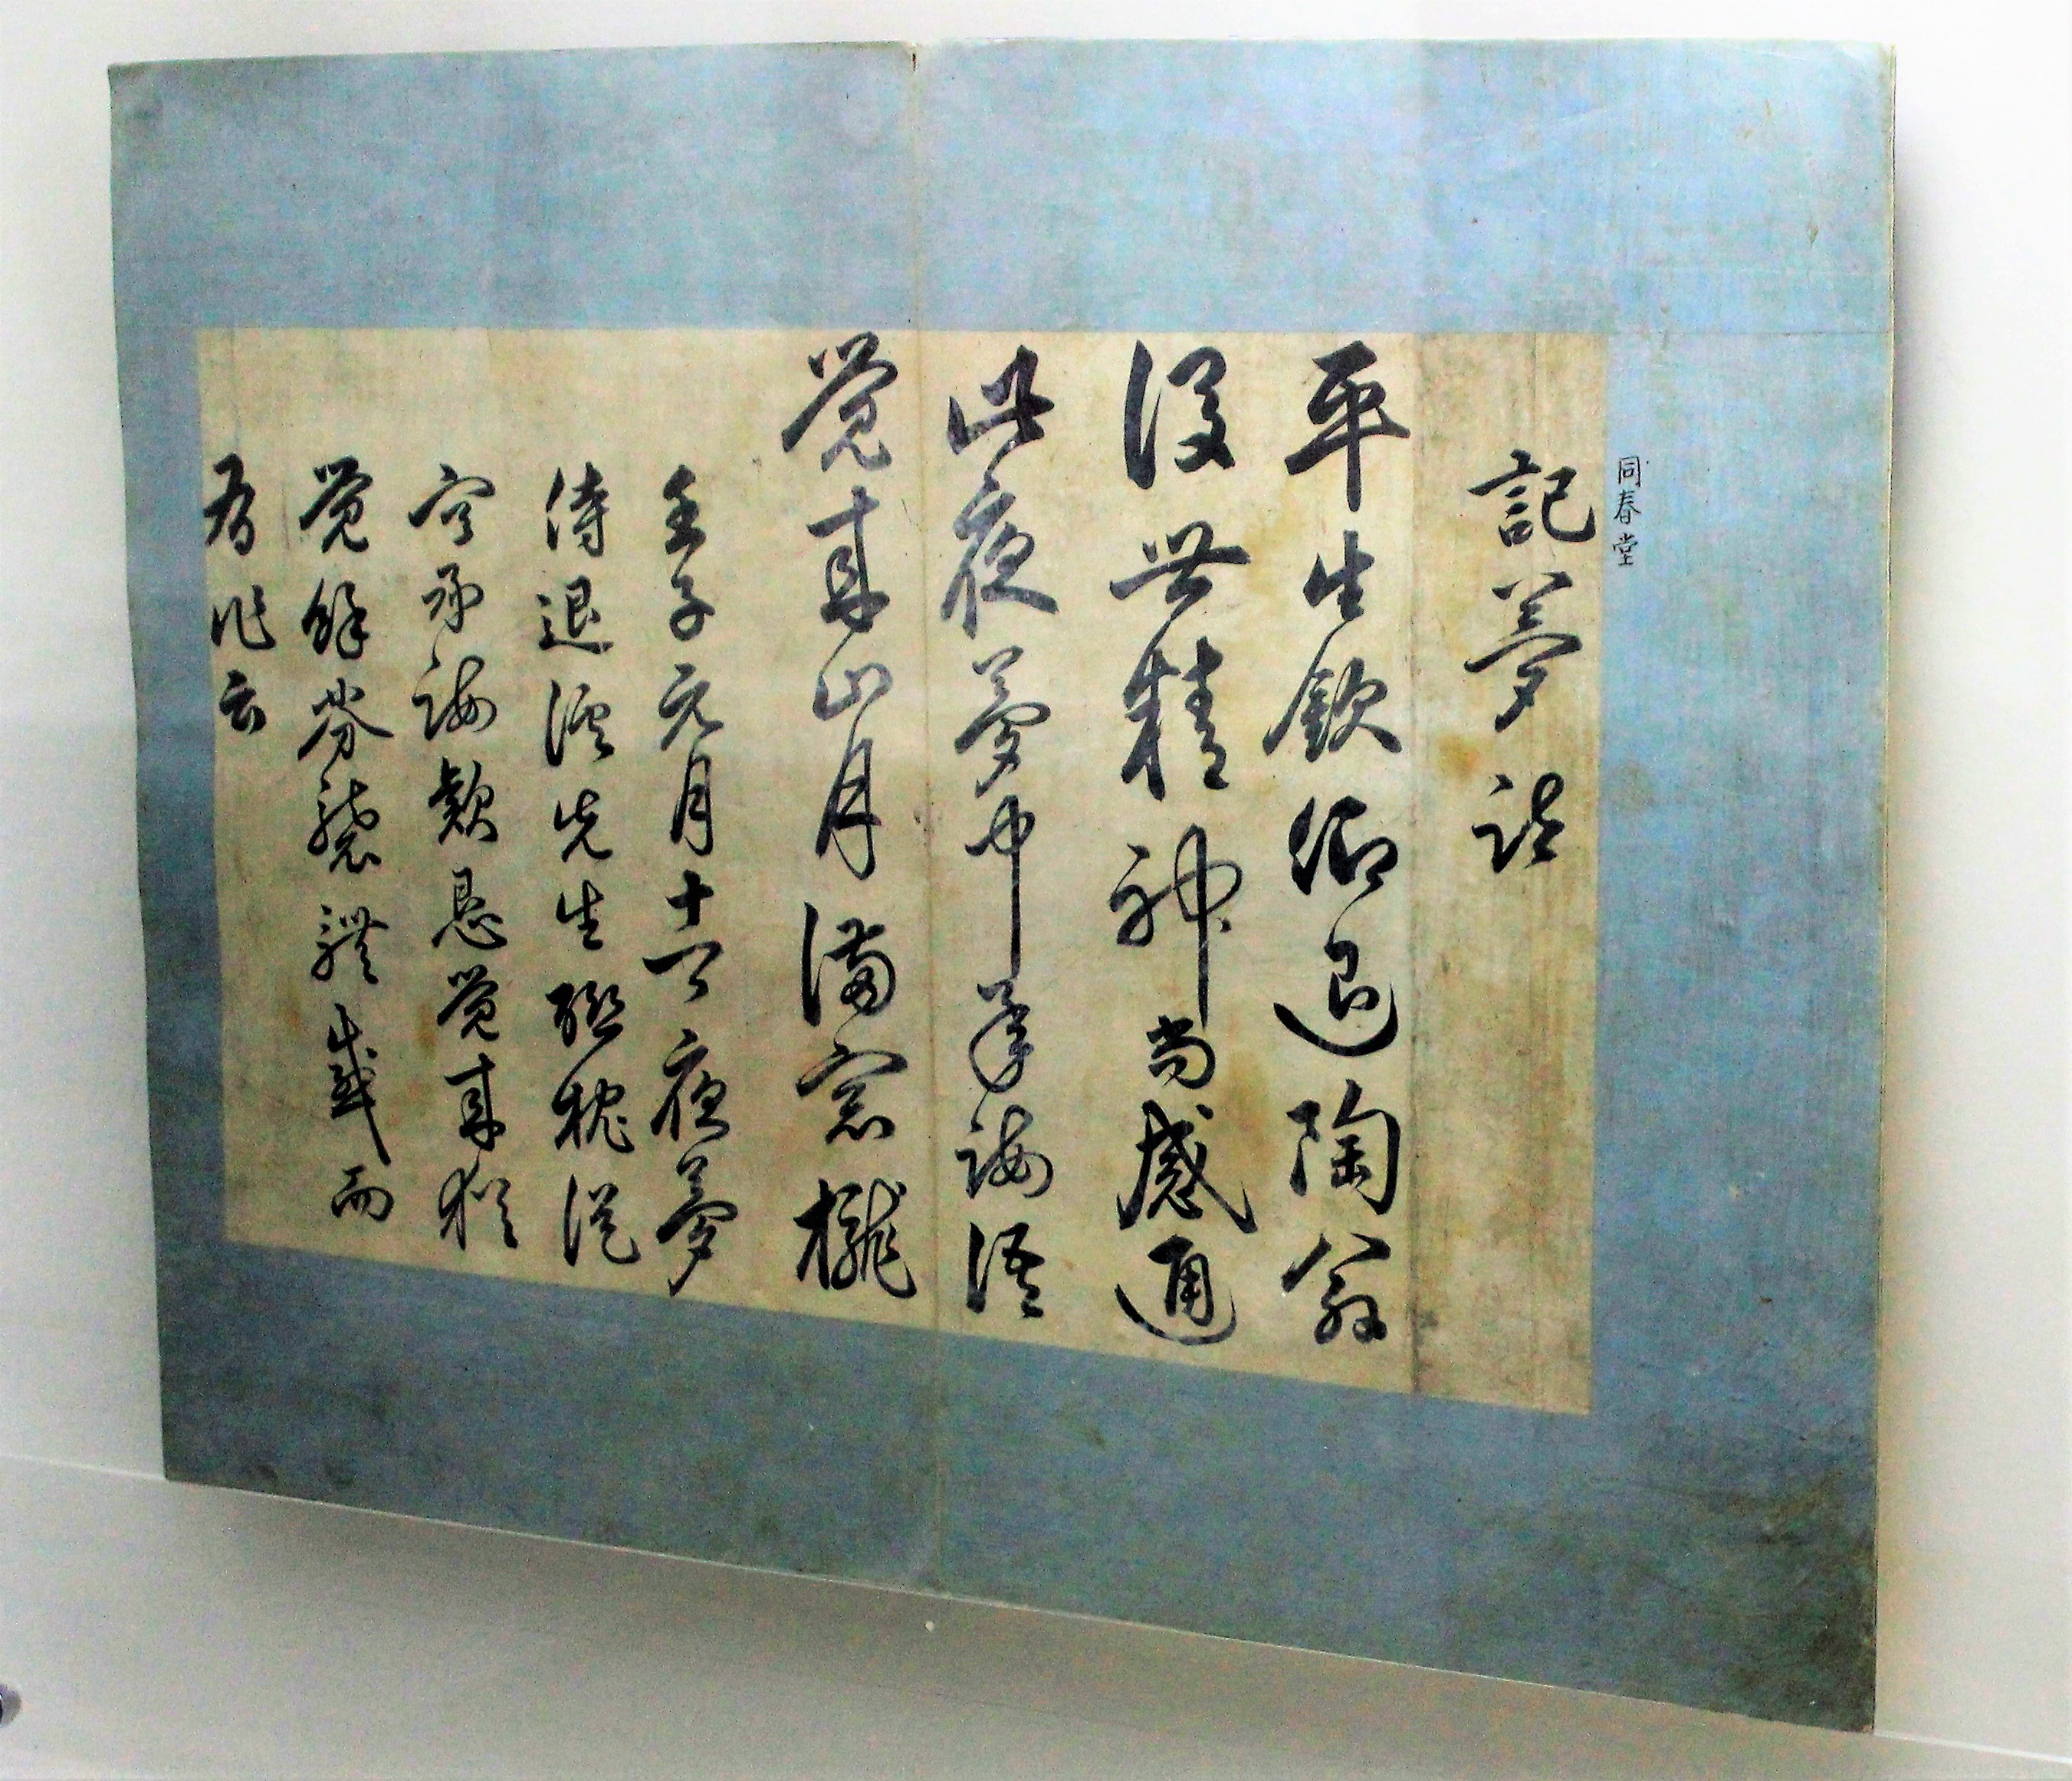 同春堂
記夢詩
平生欽仰退陶翁
沒世精神尚感通
此夜夢中承誨語
覺來山月滿窓櫳
壬子元月十一日夜夢
侍退溪先生聯枕從
容承誨款懇覺來猶
覺餘芬襲體感而
有作云